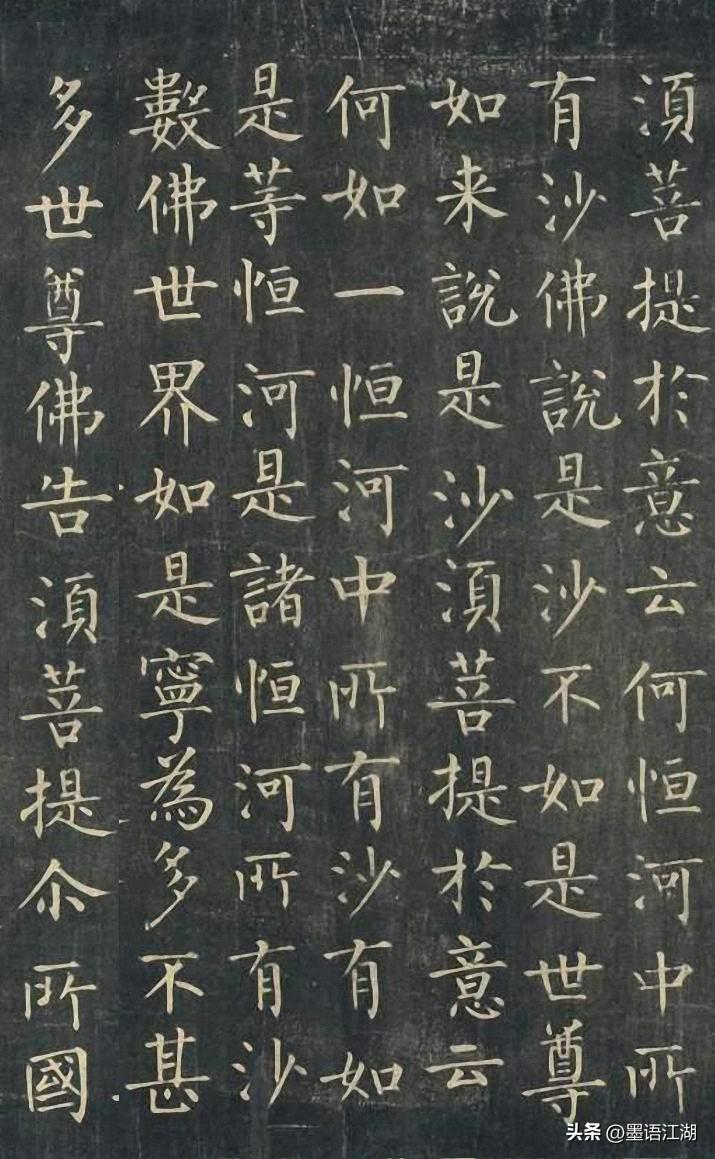 湏菩提於意云何恒河中所
有沙佛說是沙不如是世尊
如来說是沙湏菩提於意云
何如一恒河中所有沙有如
是等恒河是諸恒河所有沙
數佛世界如是寧為多不甚
多世尊佛告湏菩提尒所國
头条 @墨语江湖